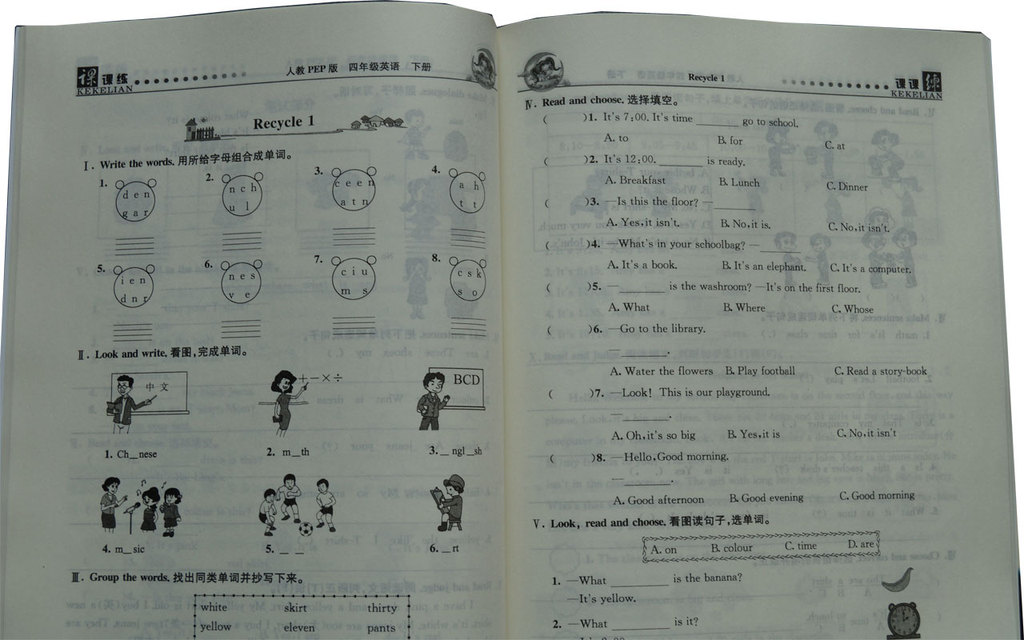 课课练
KEKELIAN
人教 PEP 版 四年级英语 下册
Recycle 1
Ⅰ. Write the words. 用所给字母组合成单词。
1. 2. 3. 4.
d e n
g a r
n c h
u l
c e e n
a t n
a h
t t
5. 6. 7. 8.
i e n
d n r
n e s
v e
c i u
m s
c s k
s o
Ⅱ. Look and write. 看图,完成单词。
中 文
+-×÷
BCD
1. Ch_nese 2. m_th 3. _ngl_sh
4. m_sic 5. _ _ 6. _rt
Ⅲ. Group the words. 找出同类单词并抄写下来。
white skirt thirty
yellow eleven pants
Recycle 1
课课练
KEKELIAN
Ⅳ. Read and choose. 选择填空。
( )1. It's 7:00. It's time ______ go to school.
A. to B. for C. at
( )2. It's 12:00. ______ is ready.
A. Breakfast B. Lunch C. Dinner
( )3. —Is this the floor? —______
A. Yes, it isn't. B. No, it is. C. No, it isn't.
( )4. —What's in your schoolbag? —______
A. It's a book. B. It's an elephant. C. It's a computer.
( )5. —______ is the washroom? —It's on the first floor.
A. What B. Where C. Whose
( )6. —Go to the library.
—______.
A. Water the flowers B. Play football C. Read a story-book
( )7. —Look! This is our playground.
—______.
A. Oh, it's so big B. Yes, it is C. No, it isn't
( )8. —Hello, Good morning.
—______.
A. Good afternoon B. Good evening C. Good morning
Ⅴ. Look, read and choose. 看图读句子,选单词。
A. on B. colour C. time D. are
1. —What ______ is the banana?
—It's yellow.
2. —What ______ is it?